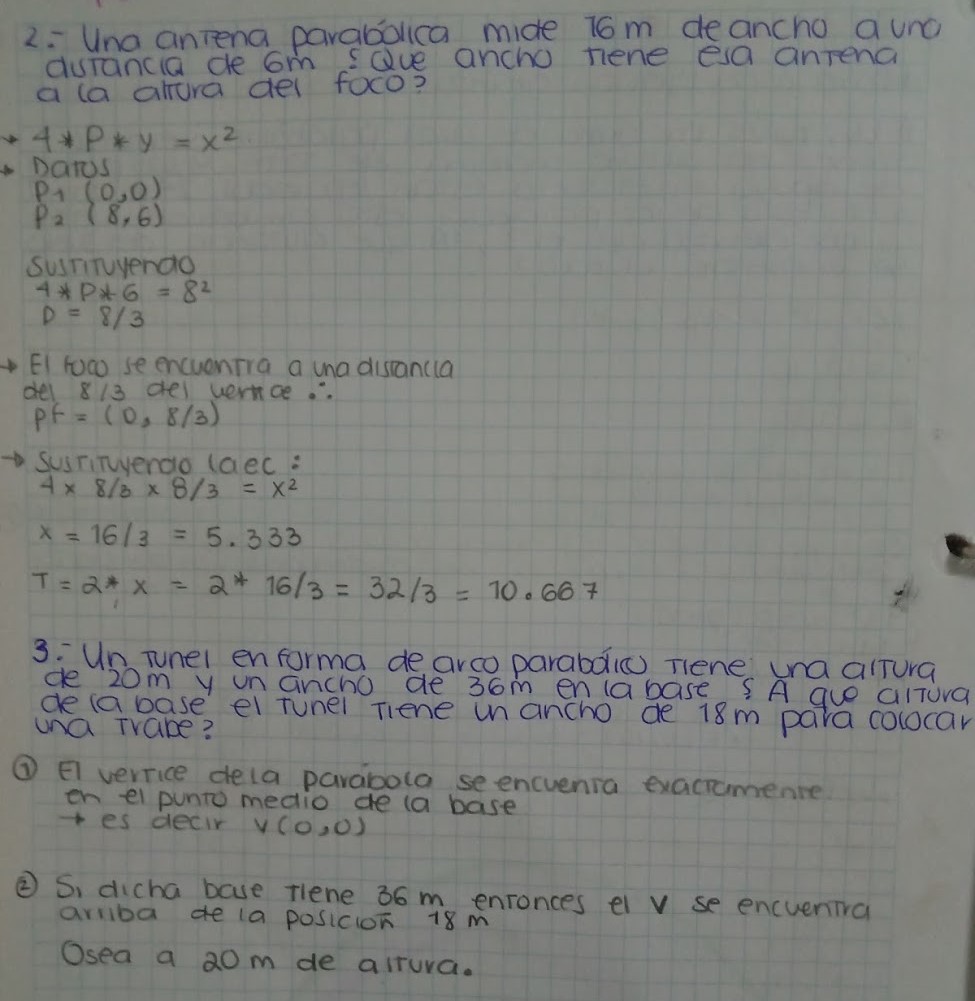 2.- Una antena parabólica mide 16 m de ancho a una
distancia de 6m ¿Que ancho tiene esa antena
a la altura del foco?
→ 4 * P * y = x²
→ Datos
P₁ (0,0)
P₂ (8,6)
Sustituyendo
4 * P * 6 = 8²
P = 8/3
→ El foco se encuentra a una distancia
del 8/3 del vertice ∴
PF = (0, 8/3)
→ Sustituyendo la ec :
4 x 8/3 x 8/3 = x²
x = 16/3 = 5.333
T = 2 * x = 2 * 16/3 = 32/3 = 10.667
3.- Un tunel en forma de arco parabólico tiene una altura
de 20m y un ancho de 36m en la base ¿A que altura
de la base el tunel tiene un ancho de 18m para colocar
una trabe?
① El vertice de la parabola se encuentra exactamente
en el punto medio de la base
→ es decir V(0,0)
② Si dicha base tiene 36 m entonces el V se encuentra
arriba de la posición 18 m
Osea a 20 m de altura.